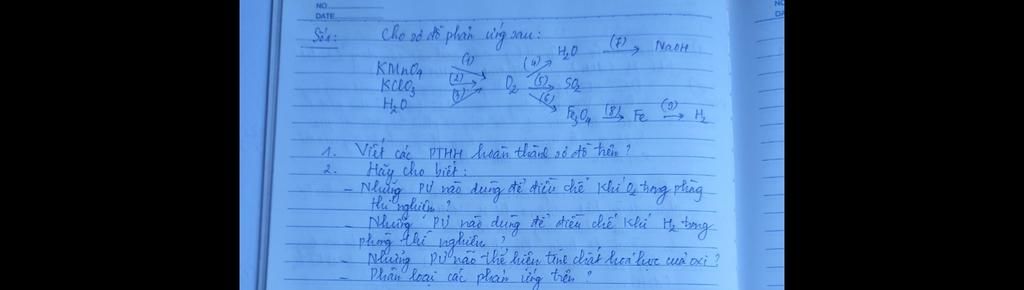 NO.
DATE
Số 1: Cho sơ đồ phản ứng sau:
H2O (7) → NaOH
KMnO4 (1) (4)
KClO3 (2) → O2 (5) → SO2
H2O (3) (6)
Fe3O4 (8) → Fe (9) → H2
1. Viết các PTHH hoàn thành sơ đồ trên?
2. Hãy cho biết:
- Những PƯ nào dùng để điều chế khí O2 trong phòng
thí nghiệm?
- Những PƯ nào dùng để điều chế khí H2 trong
phòng thí nghiệm?
- Những PƯ nào thể hiện tính chất hoá học của oxi?
- Phân loại các phản ứng trên?
NO
DA